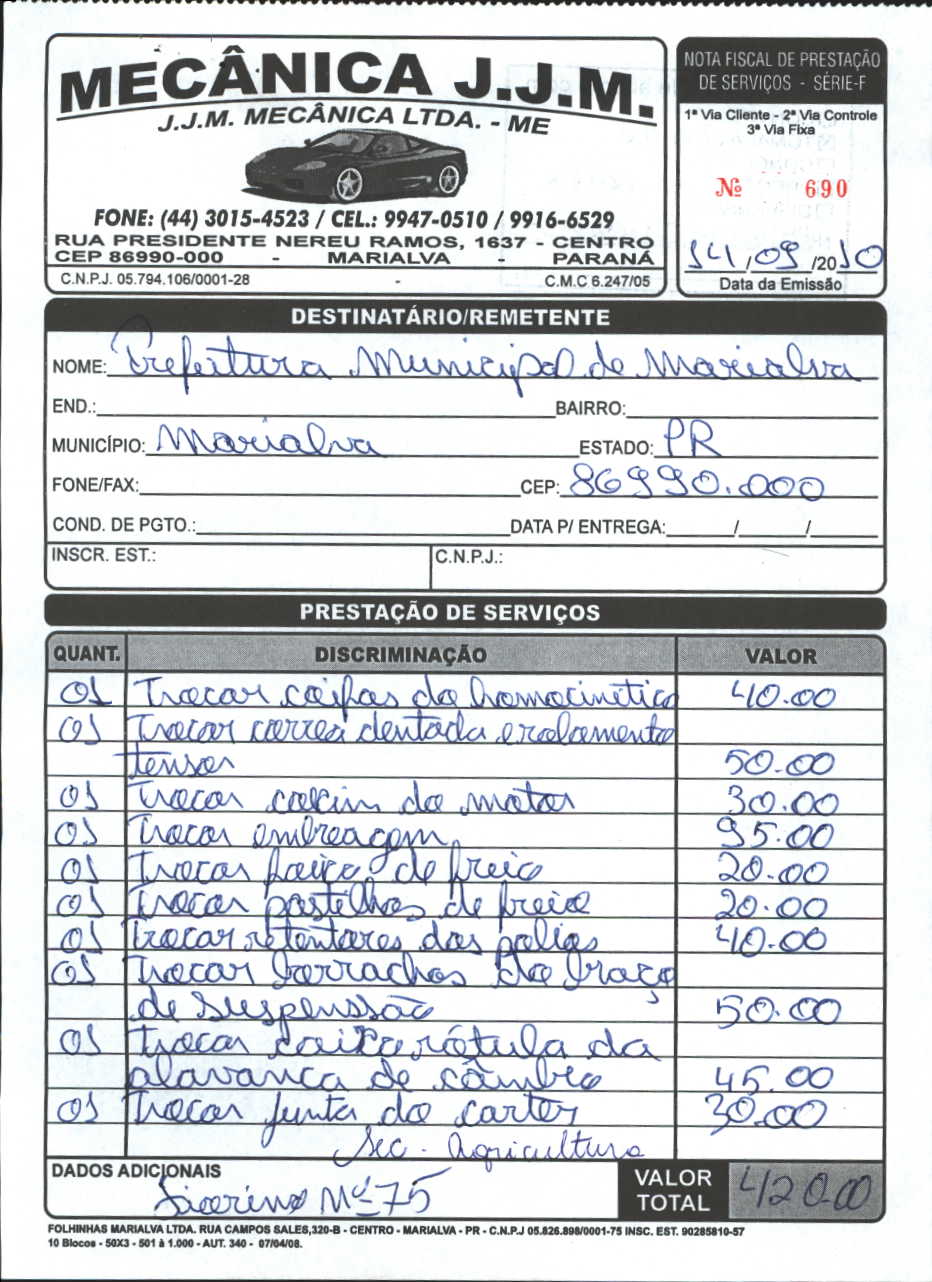 MECÂNICA J.J.M.
J.J.M. MECÂNICA LTDA. - ME
FONE: (44) 3015-4523 / CEL.: 9947-0510 / 9916-6529
RUA PRESIDENTE NEREU RAMOS, 1637 - CENTRO
CEP 86990-000 - MARIALVA - PARANÁ
C.N.P.J. 05.794.106/0001-28 - C.M.C 6.247/05
NOTA FISCAL DE PRESTAÇÃO
DE SERVIÇOS - SÉRIE-F
1ª Via Cliente - 2ª Via Controle
3ª Via Fixa
Nº 690
14/09/2010
Data da Emissão
DESTINATÁRIO/REMETENTE
NOME: Prefeitura Municipal de Marialva
END.: BAIRRO:
MUNICÍPIO: Marialva ESTADO: PR
FONE/FAX: CEP: 86990.000
COND. DE PGTO.: DATA P/ ENTREGA: / /
INSCR. EST.: C.N.P.J.:
PRESTAÇÃO DE SERVIÇOS
QUANT. DISCRIMINAÇÃO VALOR
01 Trocar coifas da homocinetica 40.00
01 Trocar correa dentada e rolamento
tensor 50.00
01 Trocar coxim do motor 30.00
01 Trocar embreagem 95.00
01 Trocar de freio 20.00
01 Trocar pastilhas de freio 20.00
01 Trocar retentores das polias 40.00
01 Trocar borrachas do braço
de suspenssão 50.00
01 Trocar caixa rótula da
alavanca de câmbio 45.00
01 Trocar junta do carter 30.00
Sec. Agricultura
DADOS ADICIONAIS
Nº 75
VALOR
TOTAL 420.00
FOLHINHAS MARIALVA LTDA. RUA CAMPOS SALES,320-B - CENTRO - MARIALVA - PR - C.N.P.J 05.826.898/0001-75 INSC. EST. 90285810-57
10 Blocos - 50X3 - 501 à 1.000 - AUT. 340 - 07/04/08.